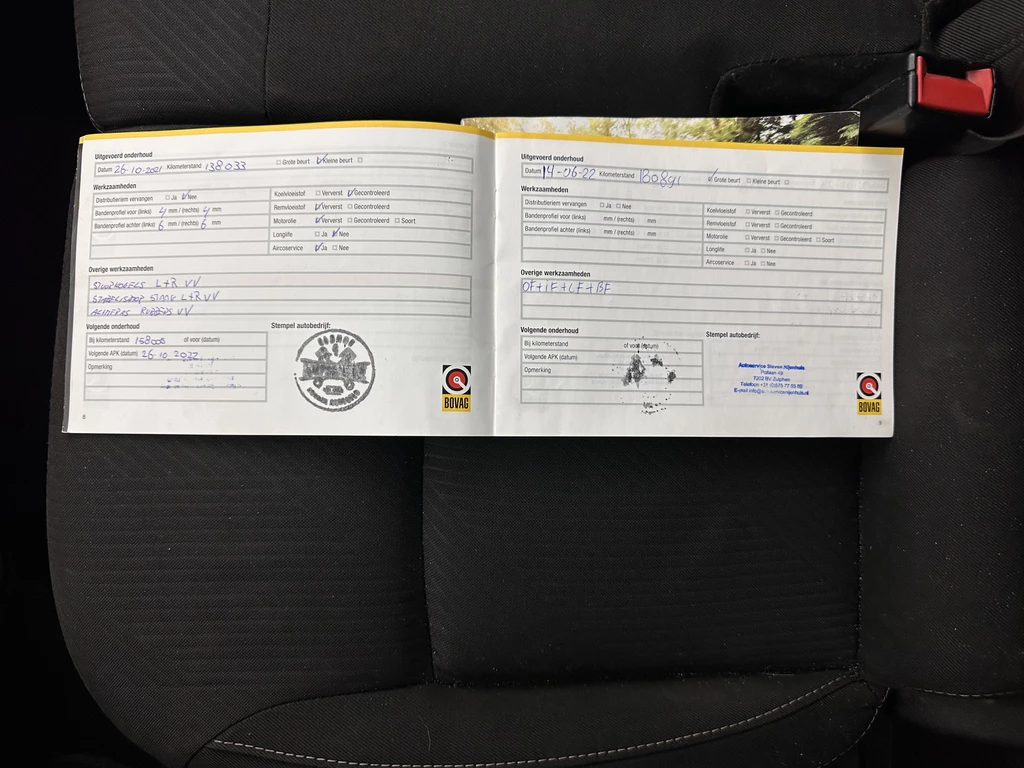 Uitgevoerd onderhoud
Datum 26-10-2021 Kilometerstand 138033 Grote beurt Kleine beurt
Werkzaamheden
Distributieriem vervangen Ja Nee
Bandenprofiel voor (links) 4 mm / (rechts) 4 mm
Bandenprofiel achter (links) 6 mm / (rechts) 6 mm
Koelvloeistof Ververst Gecontroleerd
Remvloeistof Ververst Gecontroleerd
Motorolie Ververst Gecontroleerd Soort
Longlife Ja Nee
Aircoservice Ja Nee
Overige werkzaamheden
L+R VV
L+R VV
RUBBERS VV
Volgende onderhoud
Bij kilometerstand 158000 of voor (datum)
Volgende APK (datum) 26-10-2022
Opmerking
Stempel autobedrijf:
BOVAG
8
Uitgevoerd onderhoud
Datum 14-06-22 Kilometerstand Grote beurt Kleine beurt
Werkzaamheden
Distributieriem vervangen Ja Nee
Bandenprofiel voor (links) mm / (rechts) mm
Bandenprofiel achter (links) mm / (rechts) mm
Koelvloeistof Ververst Gecontroleerd
Remvloeistof Ververst Gecontroleerd
Motorolie Ververst Gecontroleerd Soort
Longlife Ja Nee
Aircoservice Ja Nee
Overige werkzaamheden
OF+iF+LF+BF
Volgende onderhoud
Bij kilometerstand of voor (datum)
Volgende APK (datum)
Opmerking
Stempel autobedrijf:
Autoservice Steven Nijenhuis
7202 BV Zutphen
BOVAG
9